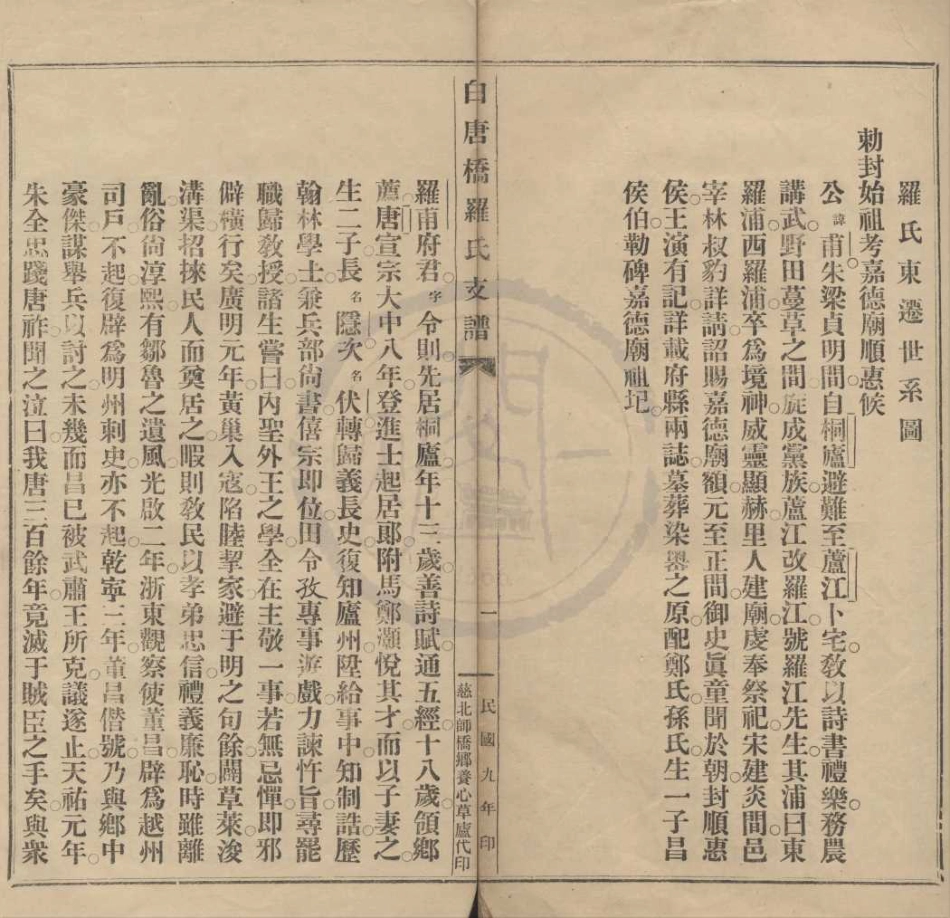 羅氏東遷世系圖
勅封始祖考嘉德廟順惠侯
公諱甫朱梁貞明間自桐廬避難至蘆江卜宅教以詩書禮樂務農
講武野田蔓草之間旋成黨族蘆江改羅江號羅江先生其浦曰東
羅浦西羅浦卒爲境神威靈顯赫里人建廟虔奉祭祀宋建炎間邑
宰林叔豹詳請詔賜嘉德廟額元至正間御史眞童聞於朝封順惠
侯王演有記詳載府縣兩誌墓葬染嶴之原配鄭氏孫氏生一子昌
侯伯勒碑嘉德廟祖圯
白唐橋羅氏支譜
一
民國九年印
慈北師橋鄉養心草廬代印
羅甫府君字令則先居桐廬年十三歲善詩賦通五經十八歲領鄉
薦唐宣宗大中八年登進士起居郞附馬鄭灝悅其才而以子妻之
生二子長名隱次名伏轉歸義長史復知廬州陞給事中知制誥歷
翰林學士兼兵部尙書僖宗即位田令孜專事遊戲力諫忤旨尋罷
職歸敎授諸生嘗曰內聖外王之學全在主敬一事若無忌憚即邪
僻橫行矣廣明元年黃巢入寇陷睦挈家避于明之句餘闢草萊浚
溝渠招徠民人而奠居之暇則敎民以孝弟忠信禮義廉恥時雖離
亂俗尙淳熙有鄒魯之遺風光啟二年浙東觀察使董昌辟爲越州
司戶不起復辟爲明州刺史亦不起乾寧二年董昌僭號乃與鄉中
豪傑謀舉兵以討之未幾而昌已被武肅王所克議遂止天祐元年
朱全忠踐唐祚聞之泣曰我唐三百餘年竟滅于賊臣之手矣與衆